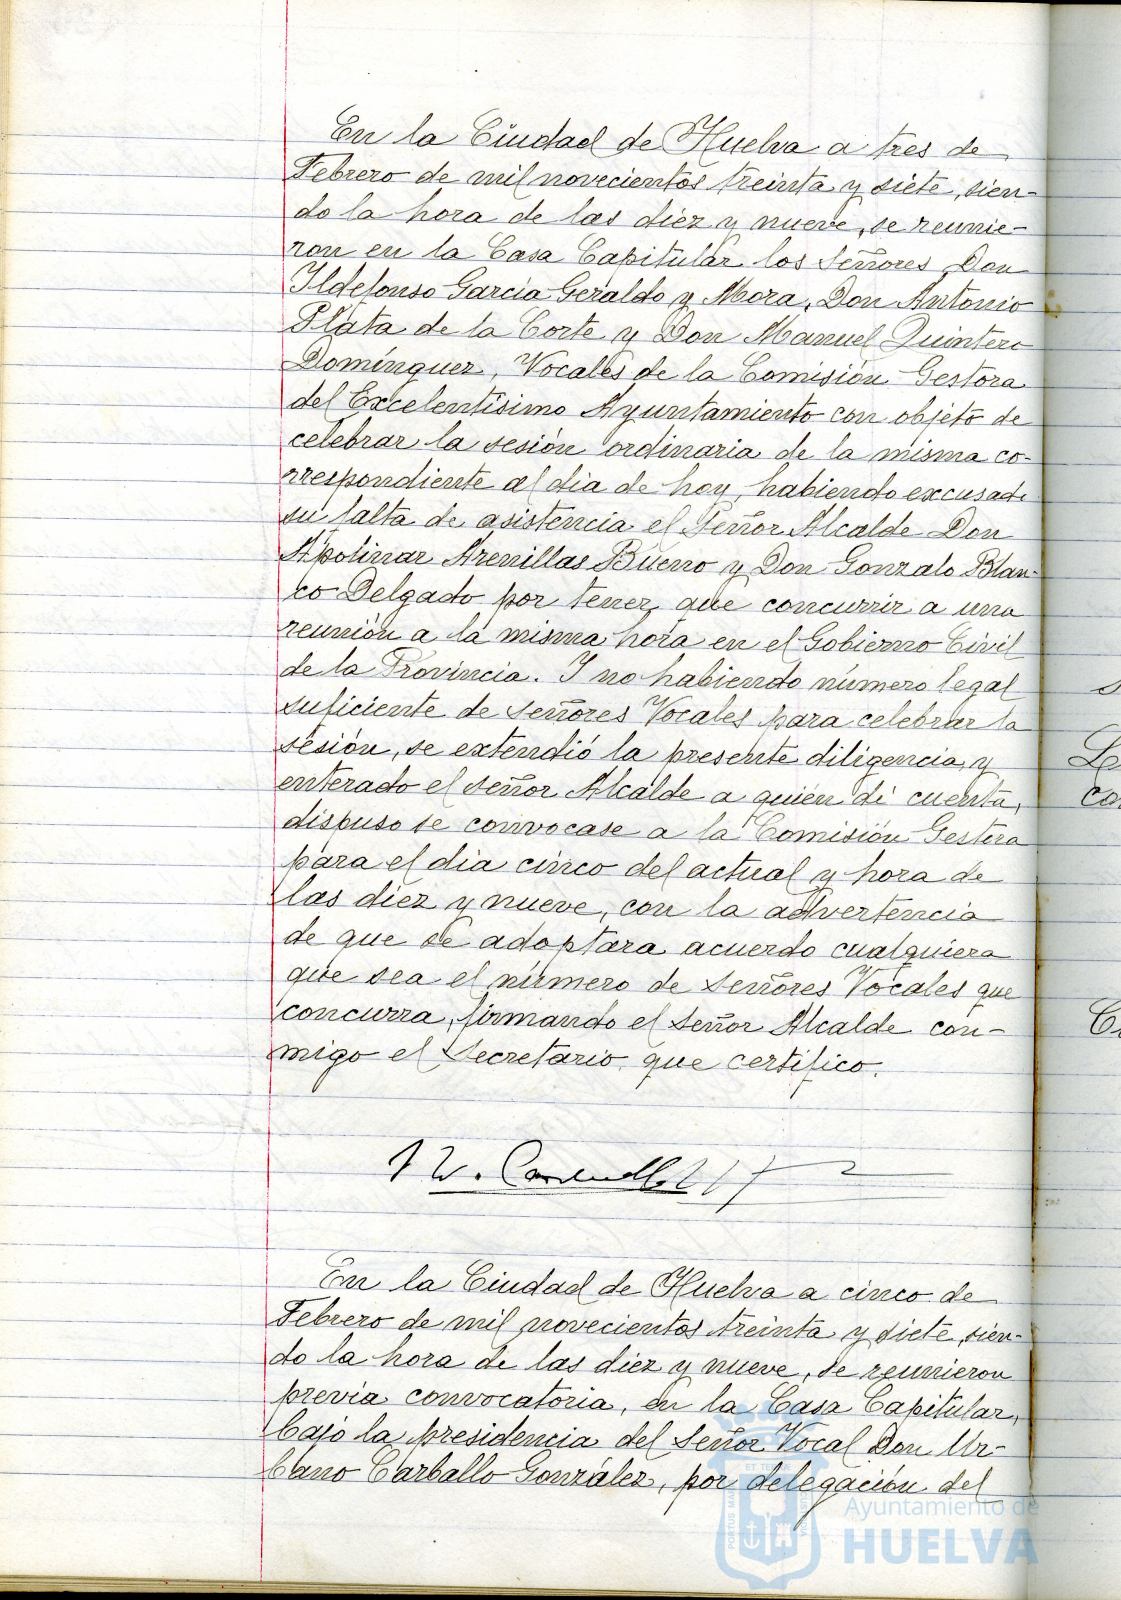 En la Ciudad de Huelva a tres de
Febrero de mil novecientos treinta y siete, sien-
do la hora de las diez y nueve, se reunie-
ron en la Casa Capitular los Señores Don
Ildefonso García Geraldo y Mora, Don Antonio
Plata de la Corte y Don Manuel Quintero
Domínguez, Vocales de la Comisión Gestora
del Excelentísimo Ayuntamiento con objeto de
celebrar la sesión ordinaria de la misma co-
rrespondiente al dia de hoy, habiendo excusado
su falta de asistencia el Señor Alcalde Don
Apolinar Arenillas Bueno y Don Gonzalo Blan-
co Delgado por tener que concurrir a una
reunión a la misma hora en el Gobierno Civil
de la Provincia. Y no habiendo número legal
suficiente de señores Vocales para celebrar la
sesión, se extendió la presente diligencia, y
enterado el señor Alcalde a quién dí cuenta,
dispuso se convocase a la Comisión Gestora
para el dia cinco del actual y hora de
las diez y nueve, con la advertencia
de que se adoptara acuerdo cualquiera
que sea el número de Señores Vocales que
concurra, firmando el Señor Alcalde con-
migo el Secretario que certifico.
En la Ciudad de Huelva a cinco de
Febrero de mil novecientos treinta y siete, sien-
do la hora de las diez y nueve, se reunieron
previa convocatoria, en la Casa Capitular,
bajo la presidencia del Señor Vocal Don Ur-
bano Carballo González, por delegación del
Ayuntamiento de
HUELVA